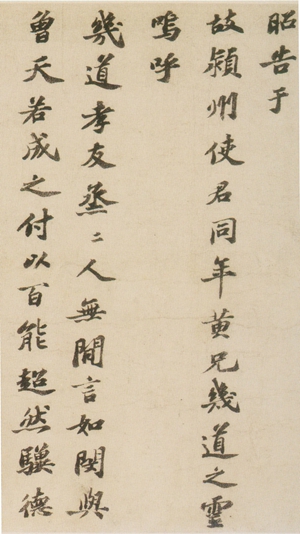 昭告于
故潁州使君同年黃兄幾道之靈
嗚呼
幾道孝友烝〻人無閒言如閔與
曾天若成之付以百能超然驥德